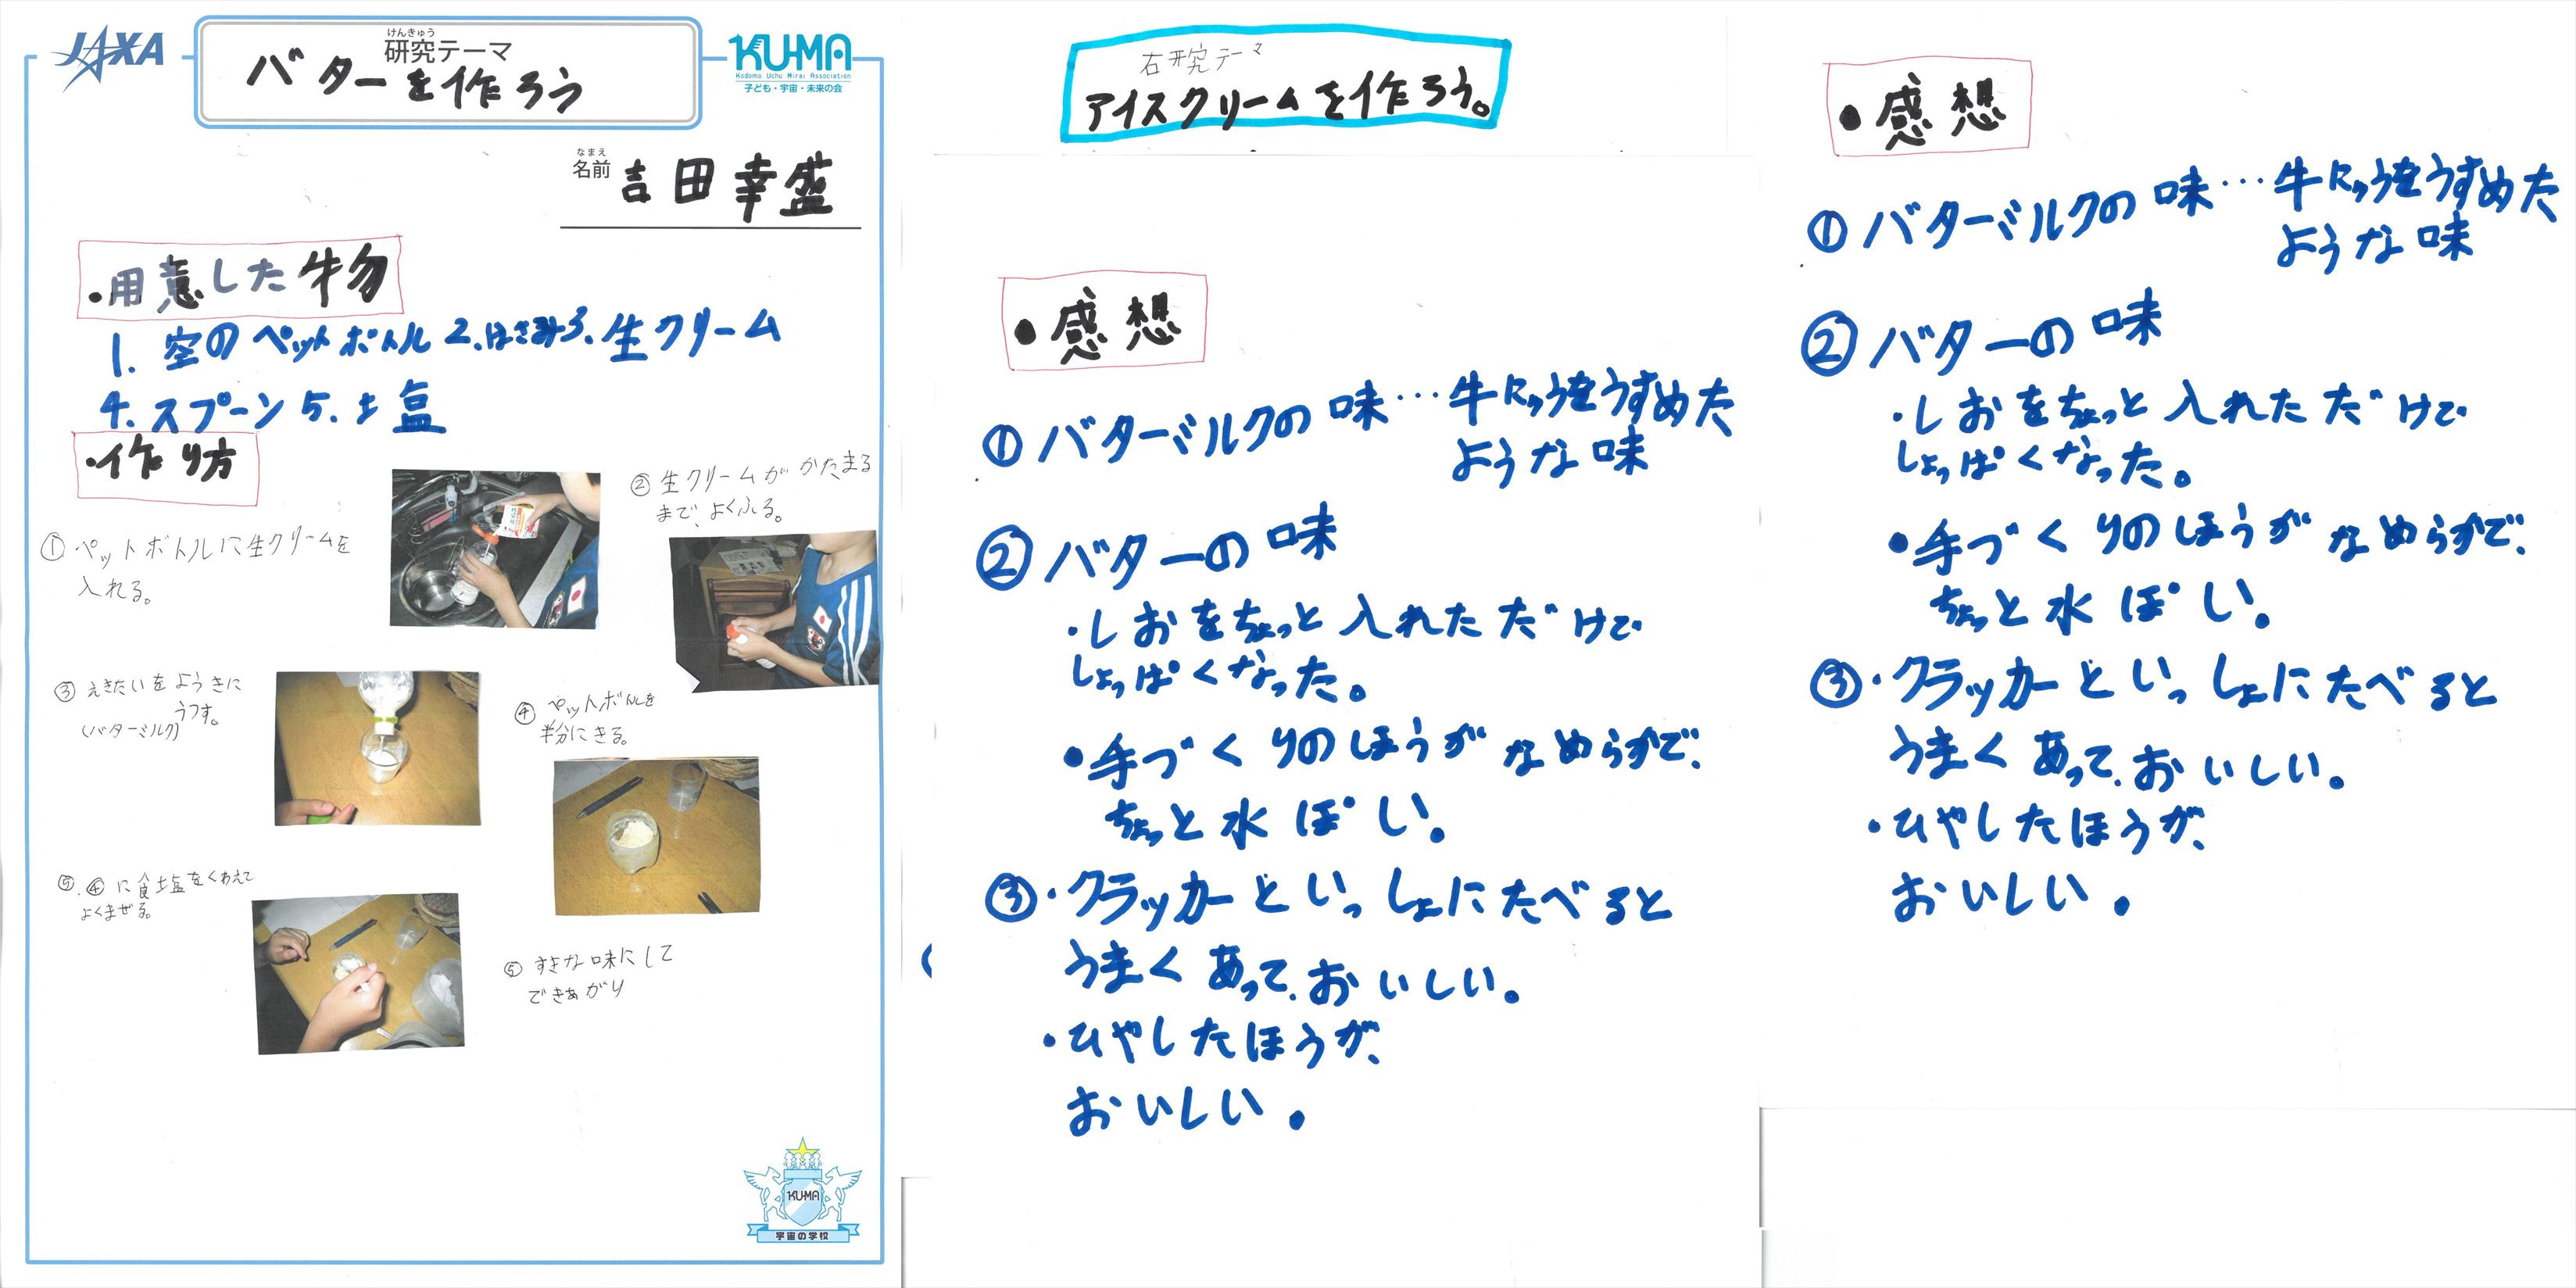 JAXA
けんきゅう
研究テーマ
バターを作ろう
KU-MA
Kodomo Uchu Mirai Association
子ども・宇宙・未来の会
なまえ
名前 吉田幸盛
・用意した物
1. 空のペットボトル 2.はさみ3.生クリーム
4.スプーン 5.塩
・作り方
① ペットボトルに生クリームを
入れる。
② 生クリームがかたまる
まで、よくふる。
③ えきたいをようきに
うつす。
(バターミルク)
④ ペットボトルを
半分にきる。
⑤.④に食塩をくわえて
よくまぜる。
⑤ すきな味にして
できあがり
KU-MA
宇宙の学校
研究テーマ
アイスクリームを作ろう。
・感想
①バターミルクの味…牛にゅうをうすめた
ような味
②バターの味
・しおをちょっと入れただけで
しょっぱくなった。
・手づくりのほうがなめらかで、
ちょっと水ぽい。
③・クラッカーといっしょにたべると
うまくあって、おいしい。
・ひやしたほうが、
おいしい。
・感想
①バターミルクの味…牛にゅうをうすめた
ような味
②バターの味
・しおをちょっと入れただけで
しょっぱくなった。
・手づくりのほうがなめらかで、
ちょっと水ぽい。
③・クラッカーといっしょにたべると
うまくあって、おいしい。
・ひやしたほうが、
おいしい。